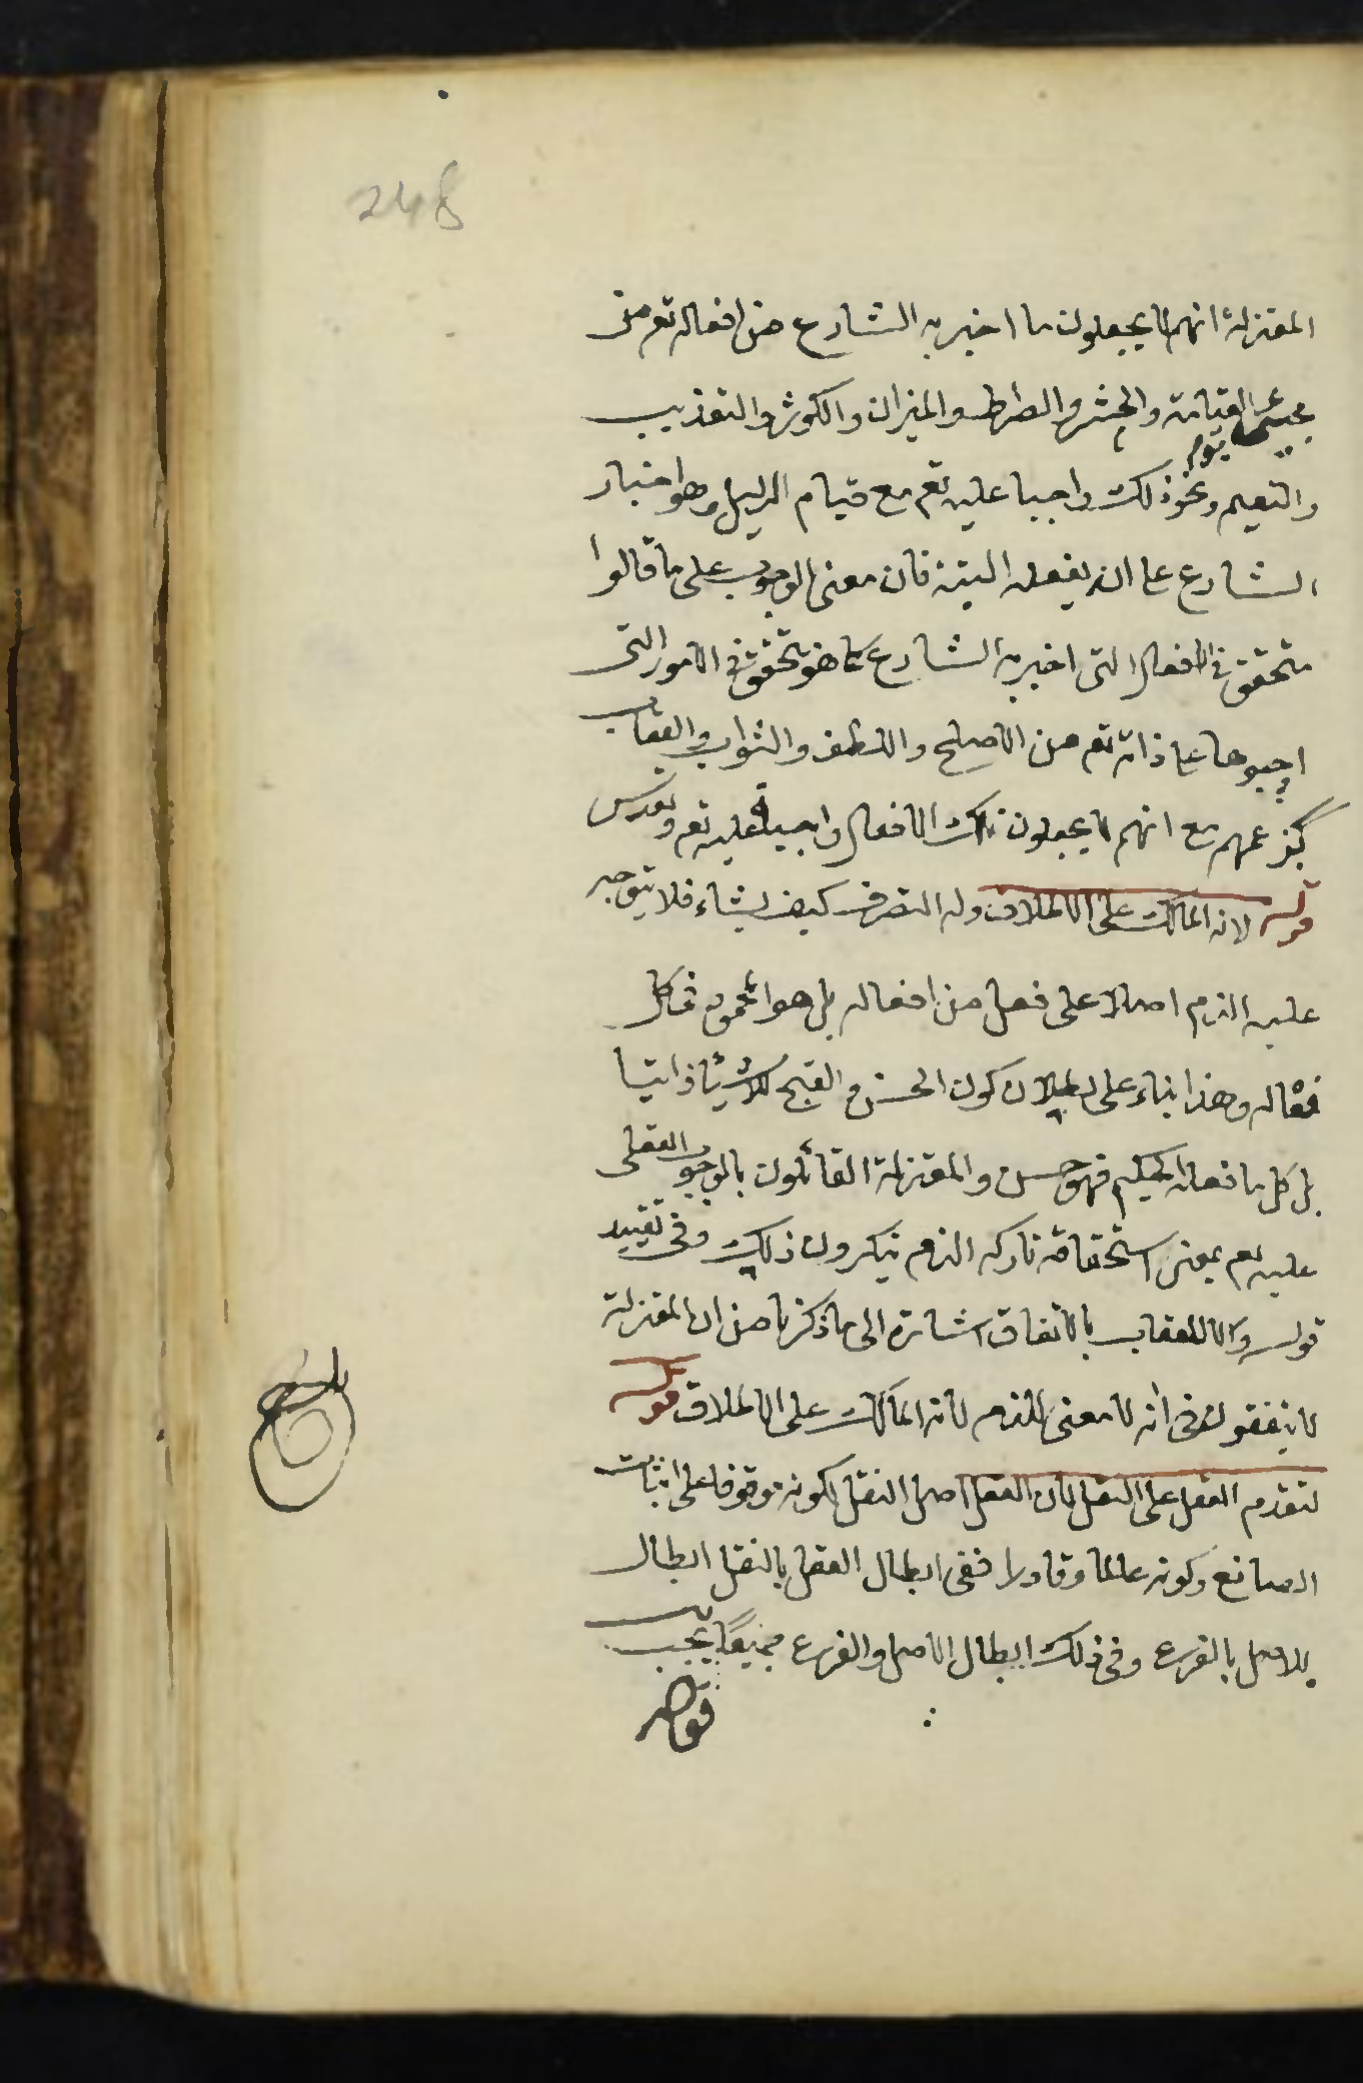 248
المعتزلة انهم لا يجعلون ما اخبر به الشارع من افعاله تع من
مجيئ يوم القيامة والحشر والصراط والميزان والكوثر والتعذيب
والتعيم ونحو ذلك واجبا عليه تع مع قيام الدليل وهو اخبار
الشارع عا انه يفعله البتة فان معنى الوجوب على ما قالوا
متحقق فى الافعال التى اخبر به الشارع كما هو متحقق فى الامور التى
اوجبوها عا ذاته تع من الاصلح واللطف والثواب والعقاب
بزعمهم مع انهم لا يجعلون تلك الافعال واجبة عليه تع وتقدس
قوله لانه المالك على الاطلاق وله التصرف كيف يشاء فلا يتوجه
عليه الذم اصلا على فعل من افعاله بل هو المحمود فى كل
فعاله وهذا بناء على بطلان كون الحسن والقبح للاشياء ذاتيا
بل كل ما فعله الحكيم فهو حسن والمعتزلة القائلون بالوجوب العقلى
عليه تع بمعنى استحقاقه تاركه الذم ينكرون ذلك وفى تقييد
قوله والا للعقاب بالاتفاق اشارة الى ما ذكرنا من ان المعتزلة
لا يتفقون فى انه لا معنى للذم لانه المالك على الاطلاق قوله
لتقدم العقل على النقل لان العقل اصل النقل لكونه موقوفا على اثبات
الصانع وكونه عالما وقادرا ففى ابطال العقل بالنقل ابطال
للاصل بالفرع وفى ذلك ابطال الاصل والفرع جميعا يجب